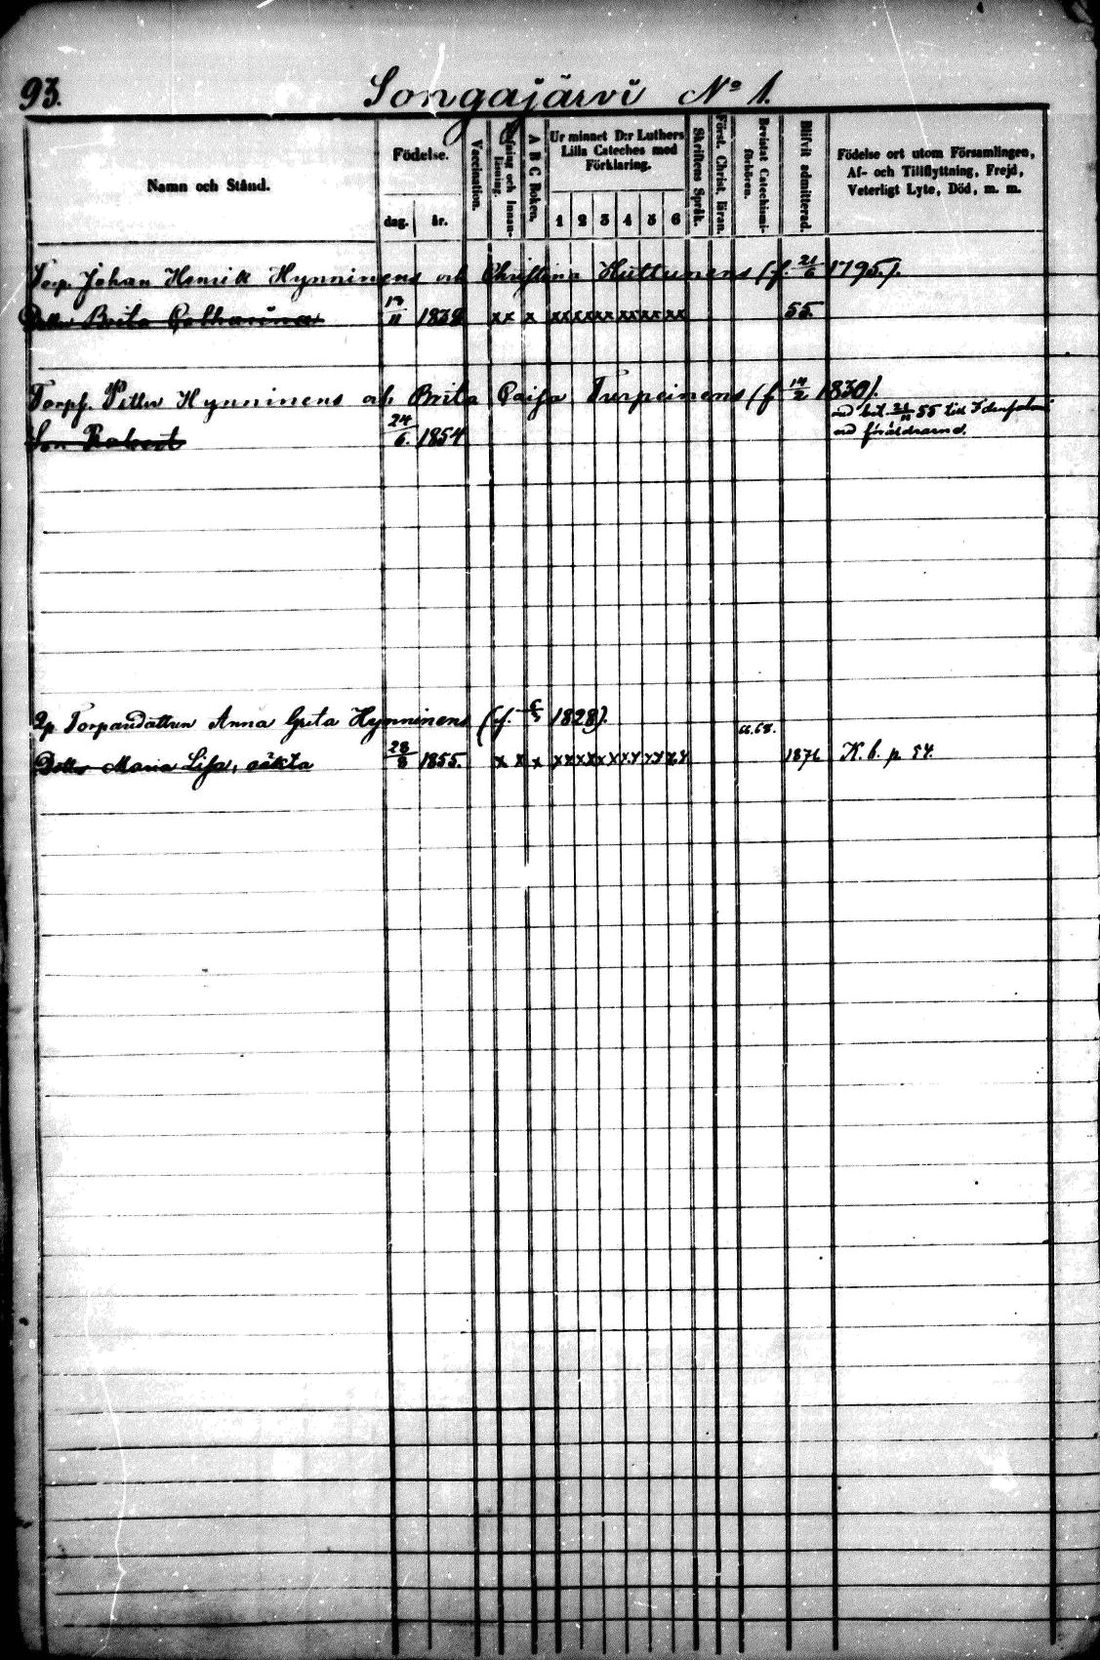 93.
Songajärvi No 1.
Namn och Stånd.
Födelse.
dag.
år.
Vaccination.
Stafning och Innanläsning.
A B C Boken.
Ur minnet D:r Luthers
Lilla Cateches med
Förklaring.
1 2 3 4 5 6
Skriftens Språk.
Först. Christ. läran.
Bevistat Catechismiförhören.
Blifvit admitterad.
Födelse ort utom Församlingen,
Af- och Tillflyttning, Frejd,
Veterligt Lyte, Död, m. m.
Torp. Johan Henrik Hynninens och Christina Huttunens (f. 21/6 1795).
Dotter Brita Catharina 1838 xx x xx xx xx xx xx xx 55.
Torpf. Petter Hynninens och Brita Caisa Turpeinens (f. 14/2 1830).
Son Robert 24/6. 1854 55 till
föräldrarne.
Torpardottren Anna Greta Hynninens (f. 1828).
Dotter Maria Lisa, oäkta 28/8 1855. x x x xx xx xx xx xx xx 1876 K. b. p. 54.